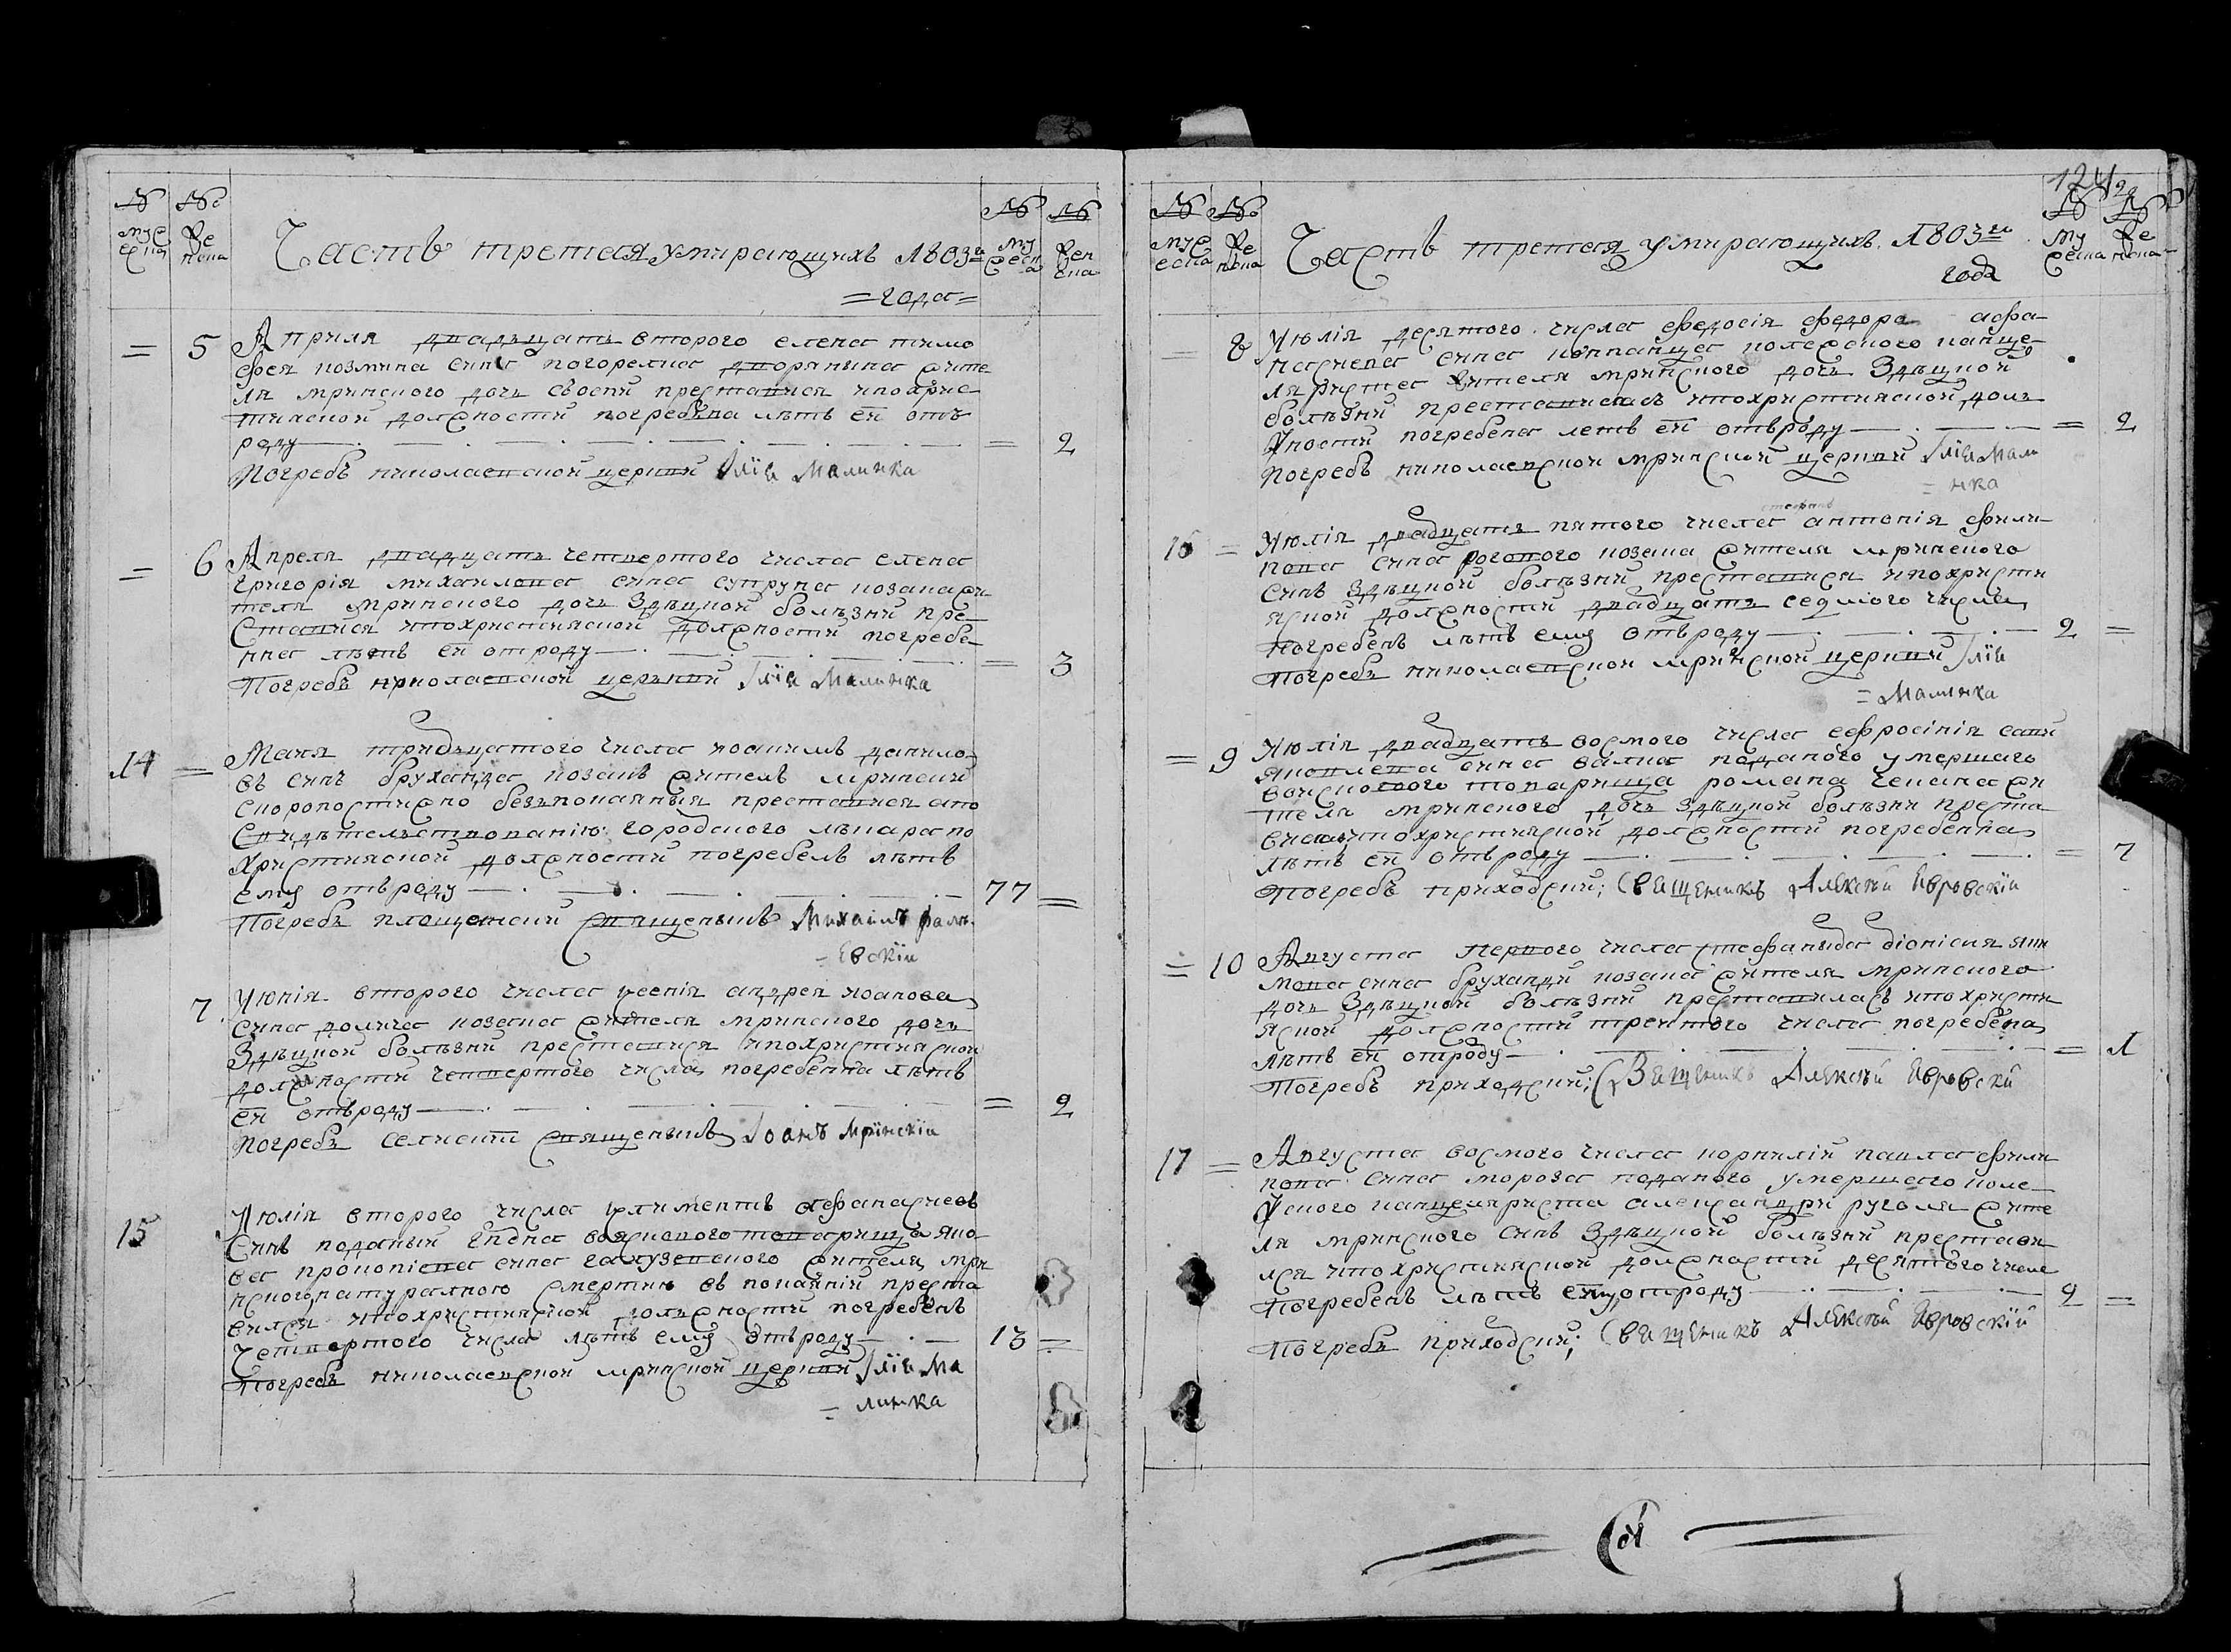 № муж еска
№ же нска
Часть третая умирающихъ 1803го
№ му жеск а
№ жен ска
= года =
= 5 Априля двадъцать второго елена тимо
фея козмина сина погорелка дворянина жите
ля мринского дочь своспи преставися ипохрис
тиянской должности погребена лѣтъ ей отъ
роду = 2
Погребъ николаевской церкви Іліа Малинка
= 6 Апреля двадцать четвертого числа елена
григорія михаилова сина супруна козака жи
теля мринского дочь Здѣшной болѣзни пре
ставися ипохристиянской должности погребе
нна лѣтъ ей отроду = 3
Погребъ николаевской церькви Іліа Малинка
14 = Маия тридъцатого числа иоакимъ данило
въ синъ брухаnда козакъ житель мринский
скоропостижно безъпокаянъия преставися апо
свидѣтелъствованию городского лѣкара по
християнской должности погребенъ лѣтъ
ему отъроду 77 =
Погребъ плоцкий священикъ Михаилъ
евскіи
7 Июнія второго числа ксенія андрея иоанова
сина козака жителя мринского дочь
Здѣшной болѣзни преставися ипохристиянской
должности четвертого числа погребенна лѣтъ
ей отъроду = 2
Погребъ священикъ Іоанъ Мринскіи
15 Июлія второго числа климентъ афанасиевъ
Синъ поданый войскового товарища яко
ва прокопіева сина галузевского жителя мри
нского натуралною смертию въ покаянии преста
вился ипохристиянской должности погребенъ
Четвертого числа лѣтъ ему отъроду 13 =
Погребъ николаевской мринской церкви Іліа Ма
= линка
124
№ муж еска
№ же нска
Часть третая умирающихъ 1803го
года
№ му жеска
№ же нска
= 8 Июлія десятого числа федосія федора афа
насиева сина полкового канце
ляриста жителя мринского дочь Здѣшной
болѣзни преставиласъ ипохристиянской долъ
жности погребена летъ ей отъроду = 2
Погребъ николаевской мринской церкви Іліа Мали
= нка
16 = Июлія двадцать пятого числа антонія фили
пова сина рогового козака жителя мринского
Синъ Здѣшной болѣзни преставися ипохристи
янской должности двадцать седмого числа
погребенъ лѣтъ ему отъроду 2 =
Погребъ николаевской мринской церкви Іліа
= Малинка
= 9 Июлія двадцать восмого числа ефросинія
сина поданого умершаго
войскового товарища романа жи
теля мринского дочь Здѣшной болѣзни преста
вися ипохристиянской должности погребенна
лѣтъ ей отъроду = 7
Погребъ приходский; Священикъ Алексѣй Явровскіи
= 10 Августа первого числа стефанида діонисия яки
мова сина брухаnди козака жителя мринского
дочь Здѣшной болѣзни преставиласъ ипохристи
янской должности третого числа погребена
лѣтъ ей отроду = 1
Погребъ приходский; Священикъ Алексѣй Явровскій
17 = Августа восмого числа корнилій павла фили
пова сина мороза поданого умершаго полко
вского канцеляриста александри руголя жите
ля мринского синъ Здѣшной болѣзни престави
лся ипохристиянской должности десятого числа
Погребенъ лѣтъ ему отроду 2 =
Погребъ приходский; Священикъ Алексѣй Явровскій